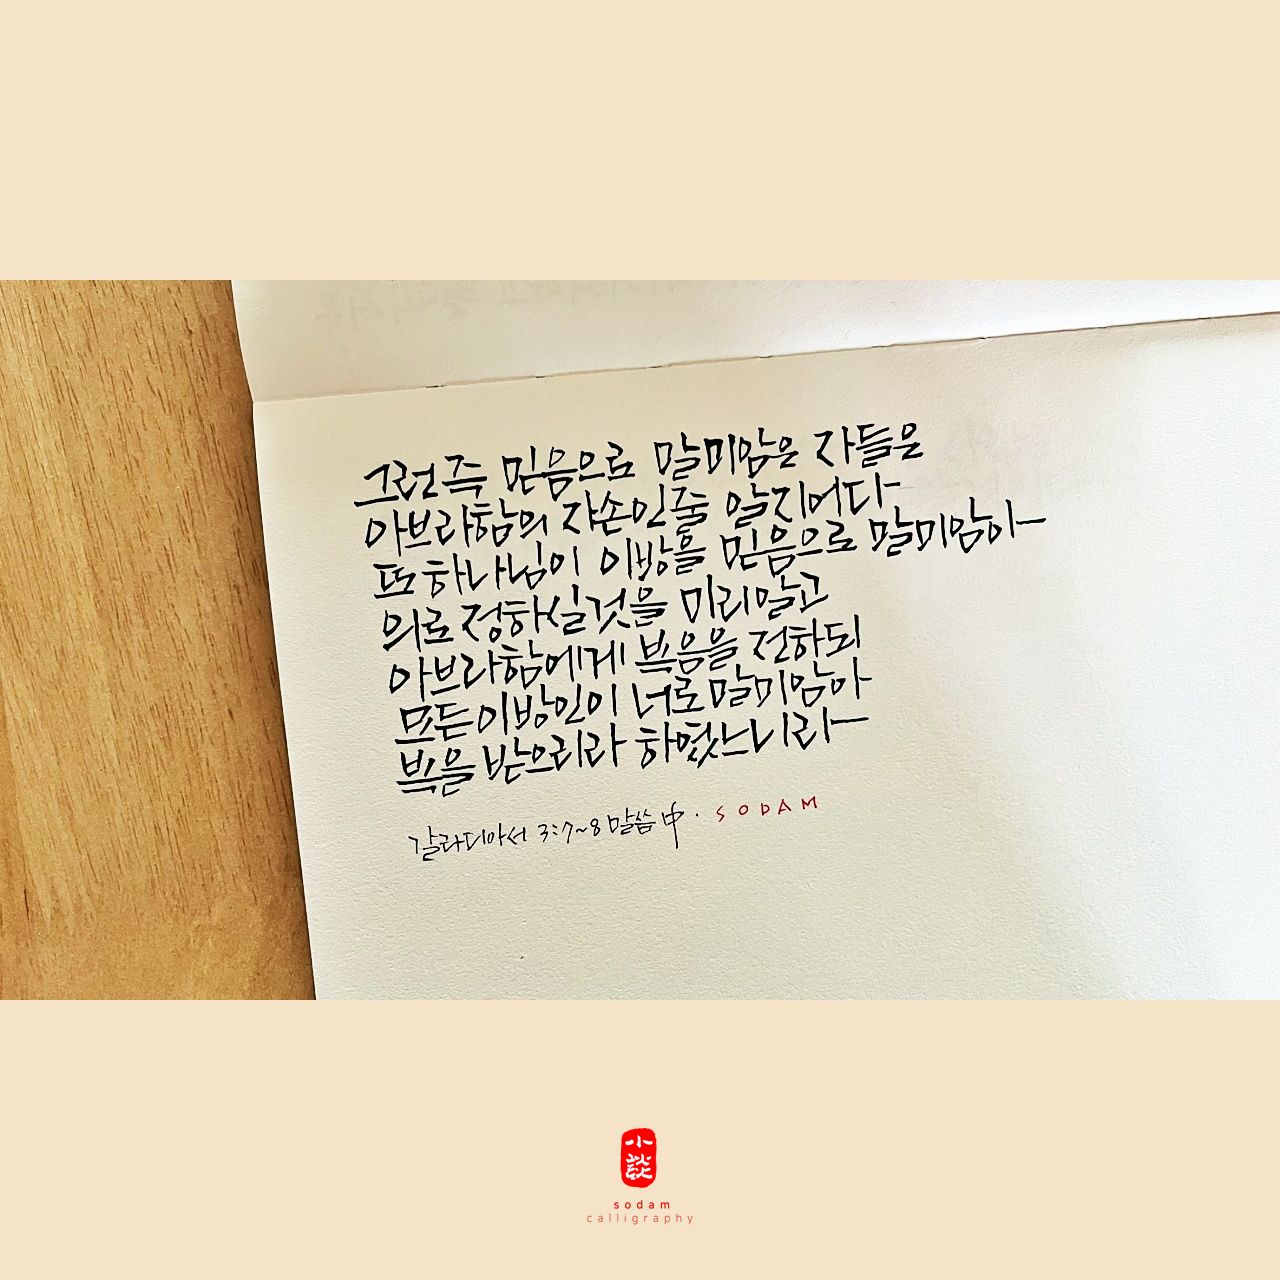 그런즉 믿음으로 말미암은 자들은
아브라함의 자손인줄 알지어다
또 하나님이 이방을 믿음으로 말미암아
의로 정하실것을 미리알고
아브라함에게 복음을 전하되
모든이방인이 너로말미암아
복을 받으리라 하였느니라
갈라디아서 3:7~8 말씀 中 · SODAM
小談
sodam
calligraphy